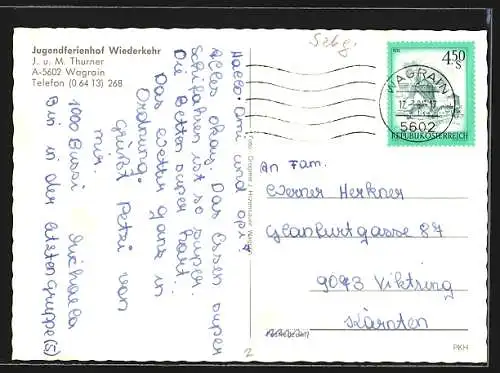 Jugendferienhof Wiederkehr
J. u. M. Thurner
A-5602 Wagrain
Telefon (0 64 13) 268
Hallo Omi und Opi!
Alles okay. Das Essen super
Schifahren ist so super.
Die Betten super hart.
Das Wetter ganz in
Ordnung.
Grüßt Petri von
mir.
1000 Bussi
Michaela
Bin in der letzten Gruppe (5)
Szbg.
4.50
S
REPUBLIK ÖSTERREICH
WAGRAIN
5602
An Fam.
Werner Herkner
Glanfurtgasse 87
9073 Viktring
Kärnten
PKH
2